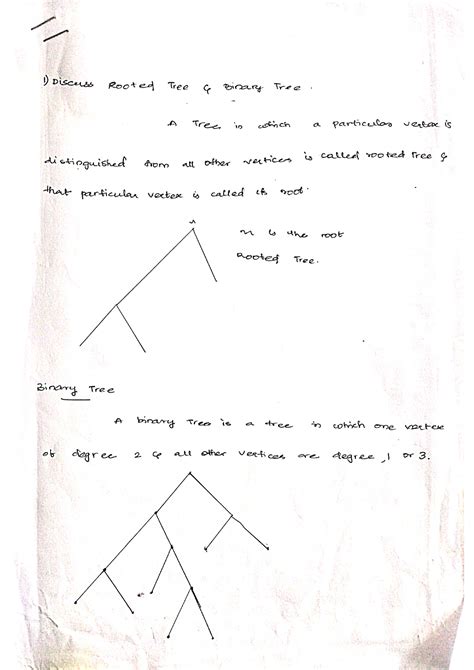 1) Discuss Rooted Tree & Binary Tree.
A Tree in which a particular vertex is
distinguished from all other vertices is called rooted Tree &
that particular vertex is called its root.
is the root
Rooted Tree.
Binary Tree
A binary Tree is a tree in which one vertex
of degree 2 & all other vertices are degree, 1 or 3.